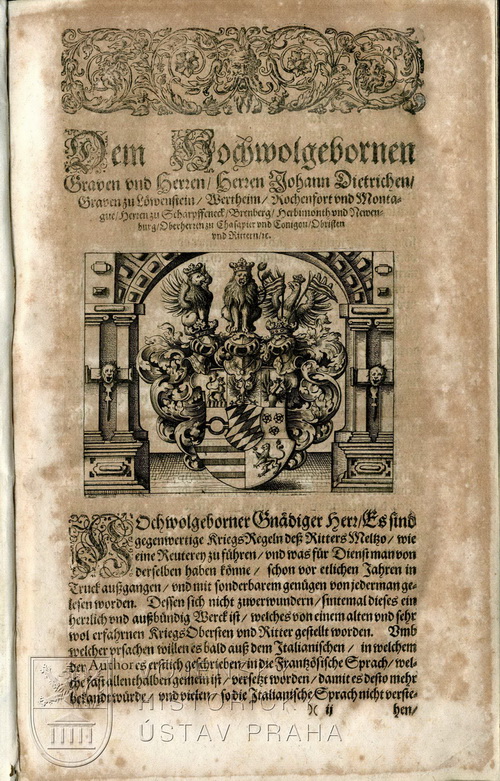 Dem Hochwolgebornen
Graven vnd Herren/ Herren Johann Dietrichen/
Graven zu Löwenstein/ Wertheim/ Rochenfort vnd Monta-
gue/ Herren zu Scharpffeneck/ Brenberg/ Herbimonth vnd Newen-
burg/ Oberherren zu Chasapier vnd Conigou/ Obristen
vnd Rittern/ ec.
HOchwolgeborner Gnädiger Herr/ Es sind
gegenwertige KriegsRegeln deß Ritters Meltzo/ wie
eine Reuterey zu führen/ vnd was für Dienst man von
derselben haben könne/ schon vor etlichen Jahren in
Truck außgangen/ vnd mit sonderbarem genügen von jederman ge-
lesen worden. Dessen sich nicht zuverwundern/ sintemal dieses ein
herrlich vnd außbündig Werck ist/ welches von einem alten vnd sehr
wol erfahrnen KriegsObersten vnd Ritter gestellt worden. Vmb
welcher vrsachen willen es bald auß dem Italianischen/ in welchem
der Authores erstlich geschrieben/ in die Frantzösische Sprach/ wel-
che fast allenthalben gemein ist/ versetzt worden/ damit es desto mehr
bekandt würde/ vnd vielen/ so die Italianische Sprach nicht verste-
)( ij hen/
HISTORICKÝ
ÚSTAV PRAHA